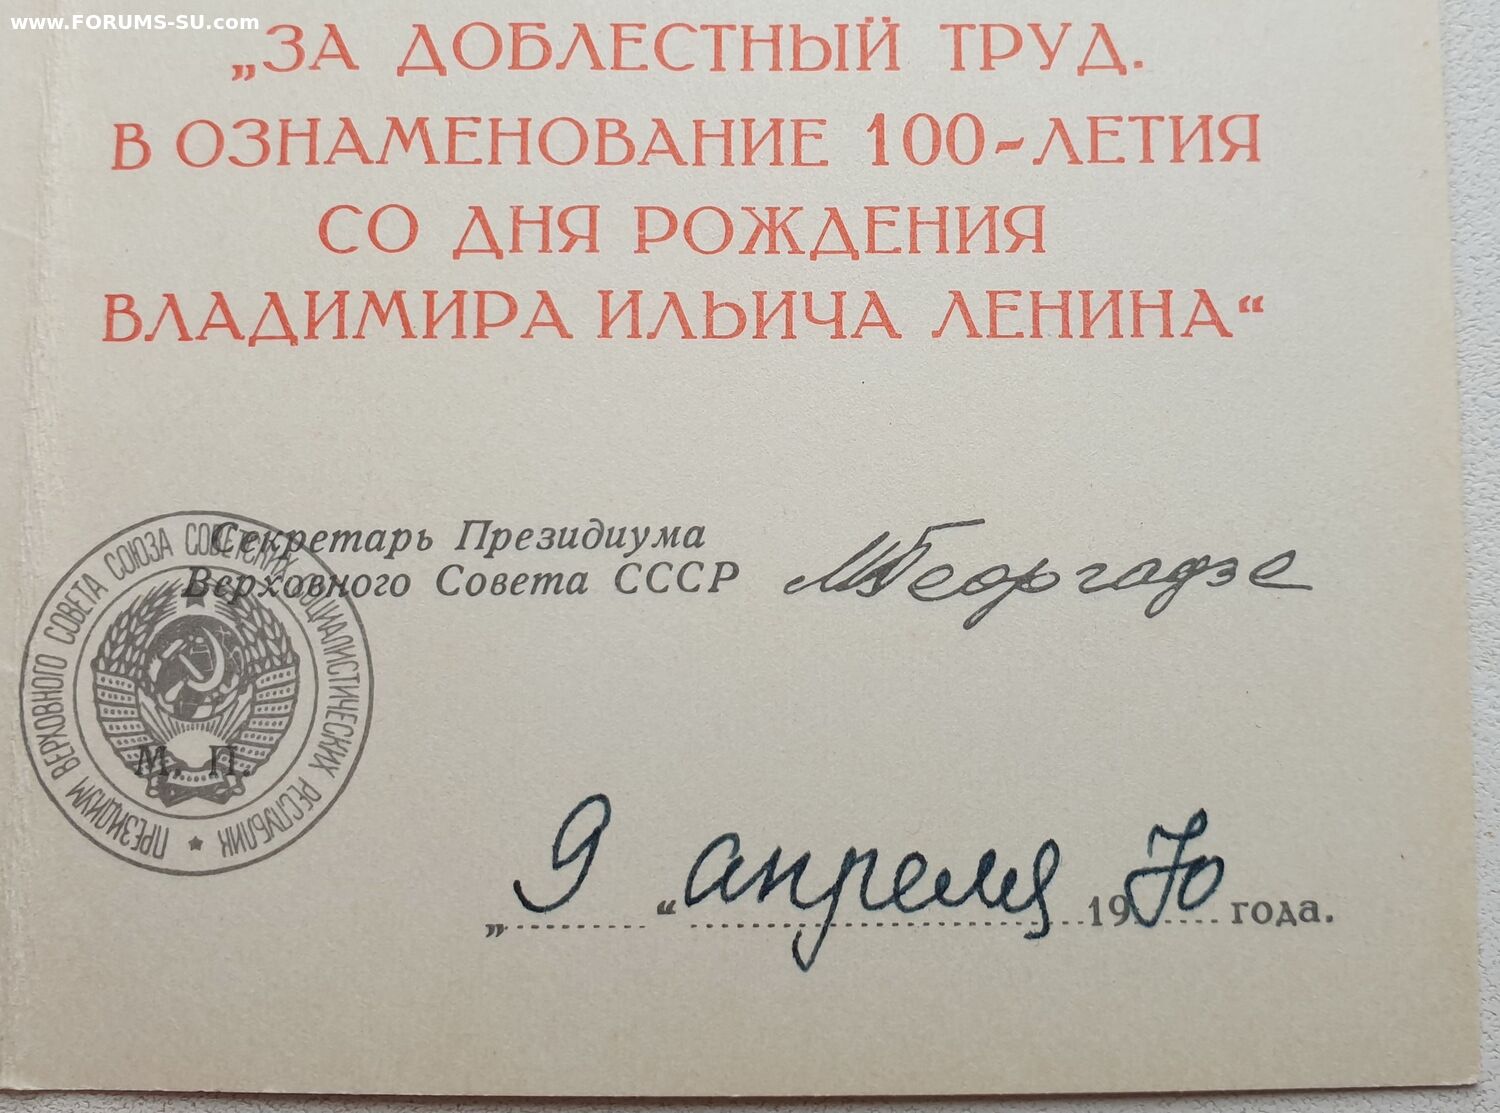 www.FORUMS-SU.com
„ЗА ДОБЛЕСТНЫЙ ТРУД.
В ОЗНАМЕНОВАНИЕ 100-ЛЕТИЯ
СО ДНЯ РОЖДЕНИЯ
ВЛАДИМИРА ИЛЬИЧА ЛЕНИНА“
Секретарь Президиума
Верховного Совета СССР МГеоргадзе
ПРЕЗИДИУМ ВЕРХОВНОГО СОВЕТА СОЮЗА СОВЕТСКИХ СОЦИАЛИСТИЧЕСКИХ РЕСПУБЛИК
М. П.
„9“ апреля 1970 года.